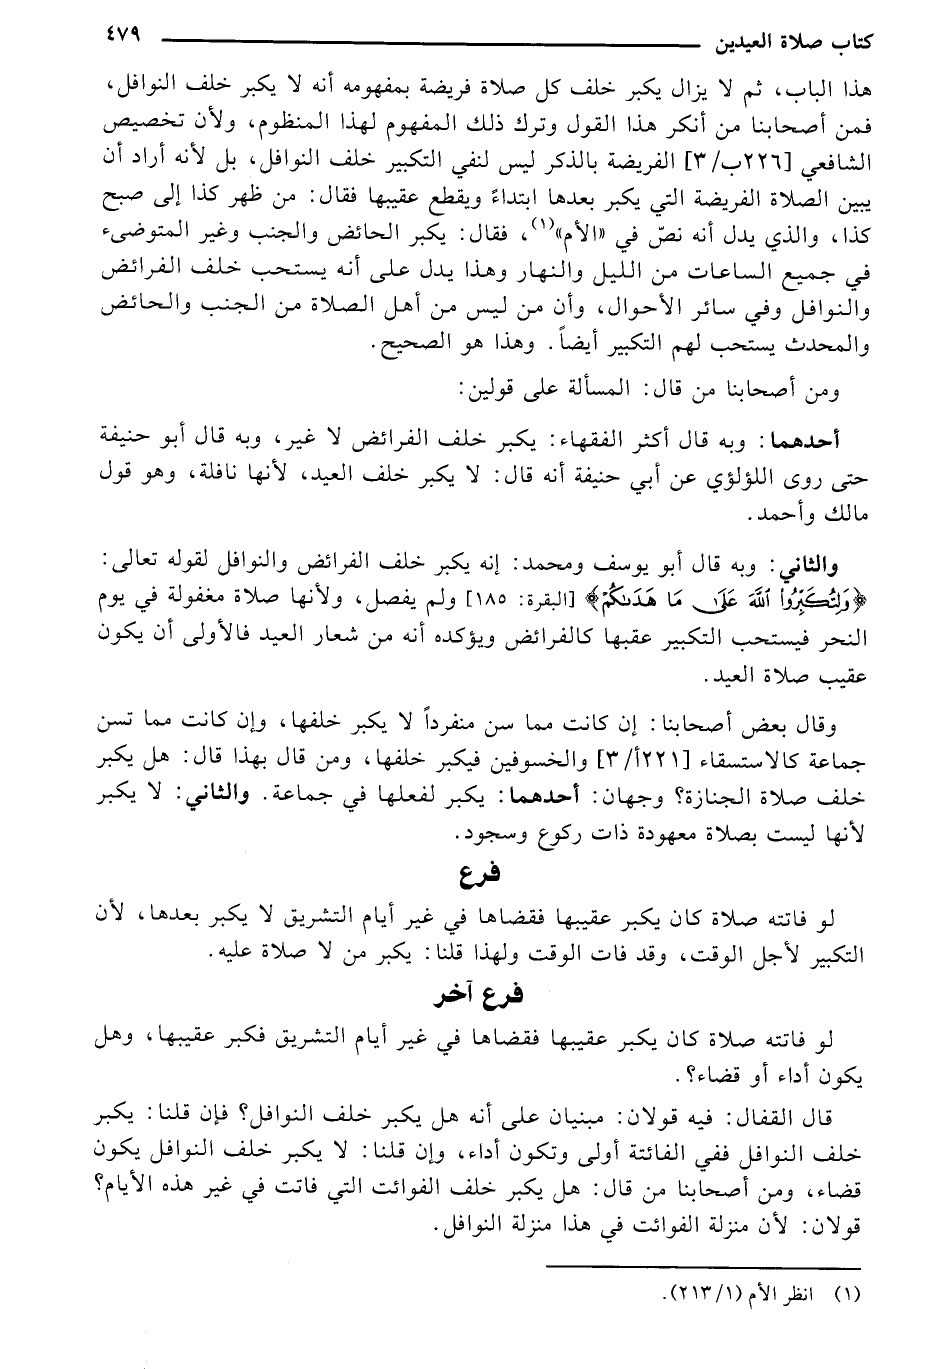 كتاب صلاة العيدين ٤٧٩
هذا الباب، ثم لا يزال يكبر خلف كل صلاة فريضة بمفهومه أنه لا يكبر خلف النوافل،
فمن أصحابنا من أنكر هذا القول وترك ذلك المفهوم لهذا المنظوم، ولأن تخصيص
الشافعي [٢٢٦ب/٣] الفريضة بالذكر ليس لنفي التكبير خلف النوافل، بل لأنه أراد أن
يبين الصلاة الفريضة التي يكبر بعدها ابتداءً ويقطع عقيبها فقال: من ظهر كذا إلى صبح
كذا، والذي يدل أنه نصّ في «الأم»(١)، فقال: يكبر الحائض والجنب وغير المتوضىء
في جميع الساعات من الليل والنهار وهذا يدل على أنه يستحب خلف الفرائض
والنوافل وفي سائر الأحوال، وأن من ليس من أهل الصلاة من الجنب والحائض
والمحدث يستحب لهم التكبير أيضاً. وهذا هو الصحيح.
ومن أصحابنا من قال: المسألة على قولين:
أحدهما: وبه قال أكثر الفقهاء: يكبر خلف الفرائض لا غير، وبه قال أبو حنيفة
حتى روى اللؤلؤي عن أبي حنيفة أنه قال: لا يكبر خلف العيد، لأنها نافلة، وهو قول
مالك وأحمد.
والثاني: وبه قال أبو يوسف ومحمد: إنه يكبر خلف الفرائض والنوافل لقوله تعالى:
﴿وَلِتُكَبِّرُوا۟ ٱللَّهَ عَلَىٰ مَا هَدَىٰكُمْ﴾ [البقرة: ١٨٥] ولم يفصل، ولأنها صلاة مغفولة في يوم
النحر فيستحب التكبير عقبها كالفرائض ويؤكده أنه من شعار العيد فالأولى أن يكون
عقيب صلاة العيد.
وقال بعض أصحابنا: إن كانت مما سن منفرداً لا يكبر خلفها، وإن كانت مما تسن
جماعة كالاستسقاء [٢٢١أ/٣] والخسوفين فيكبر خلفها، ومن قال بهذا قال: هل يكبر
خلف صلاة الجنازة؟ وجهان: أحدهما: يكبر لفعلها في جماعة. والثاني: لا يكبر
لأنها ليست بصلاة معهودة ذات ركوع وسجود.
فرع
لو فاتته صلاة كان يكبر عقيبها فقضاها في غير أيام التشريق لا يكبر بعدها، لأن
التكبير لأجل الوقت، وقد فات الوقت ولهذا قلنا: يكبر من لا صلاة عليه.
فرع آخر
لو فاتته صلاة كان يكبر عقيبها فقضاها في غير أيام التشريق فكبر عقيبها، وهل
يكون أداء أو قضاء؟.
قال القفال: فيه قولان: مبنيان على أنه هل يكبر خلف النوافل؟ فإن قلنا: يكبر
خلف النوافل ففي الفائتة أولى وتكون أداء، وإن قلنا: لا يكبر خلف النوافل يكون
قضاء، ومن أصحابنا من قال: هل يكبر خلف الفوائت التي فاتت في غير هذه الأيام؟
قولان: لأن منزلة الفوائت في هذا منزلة النوافل.
(١) انظر الأم (٢١٣/١).